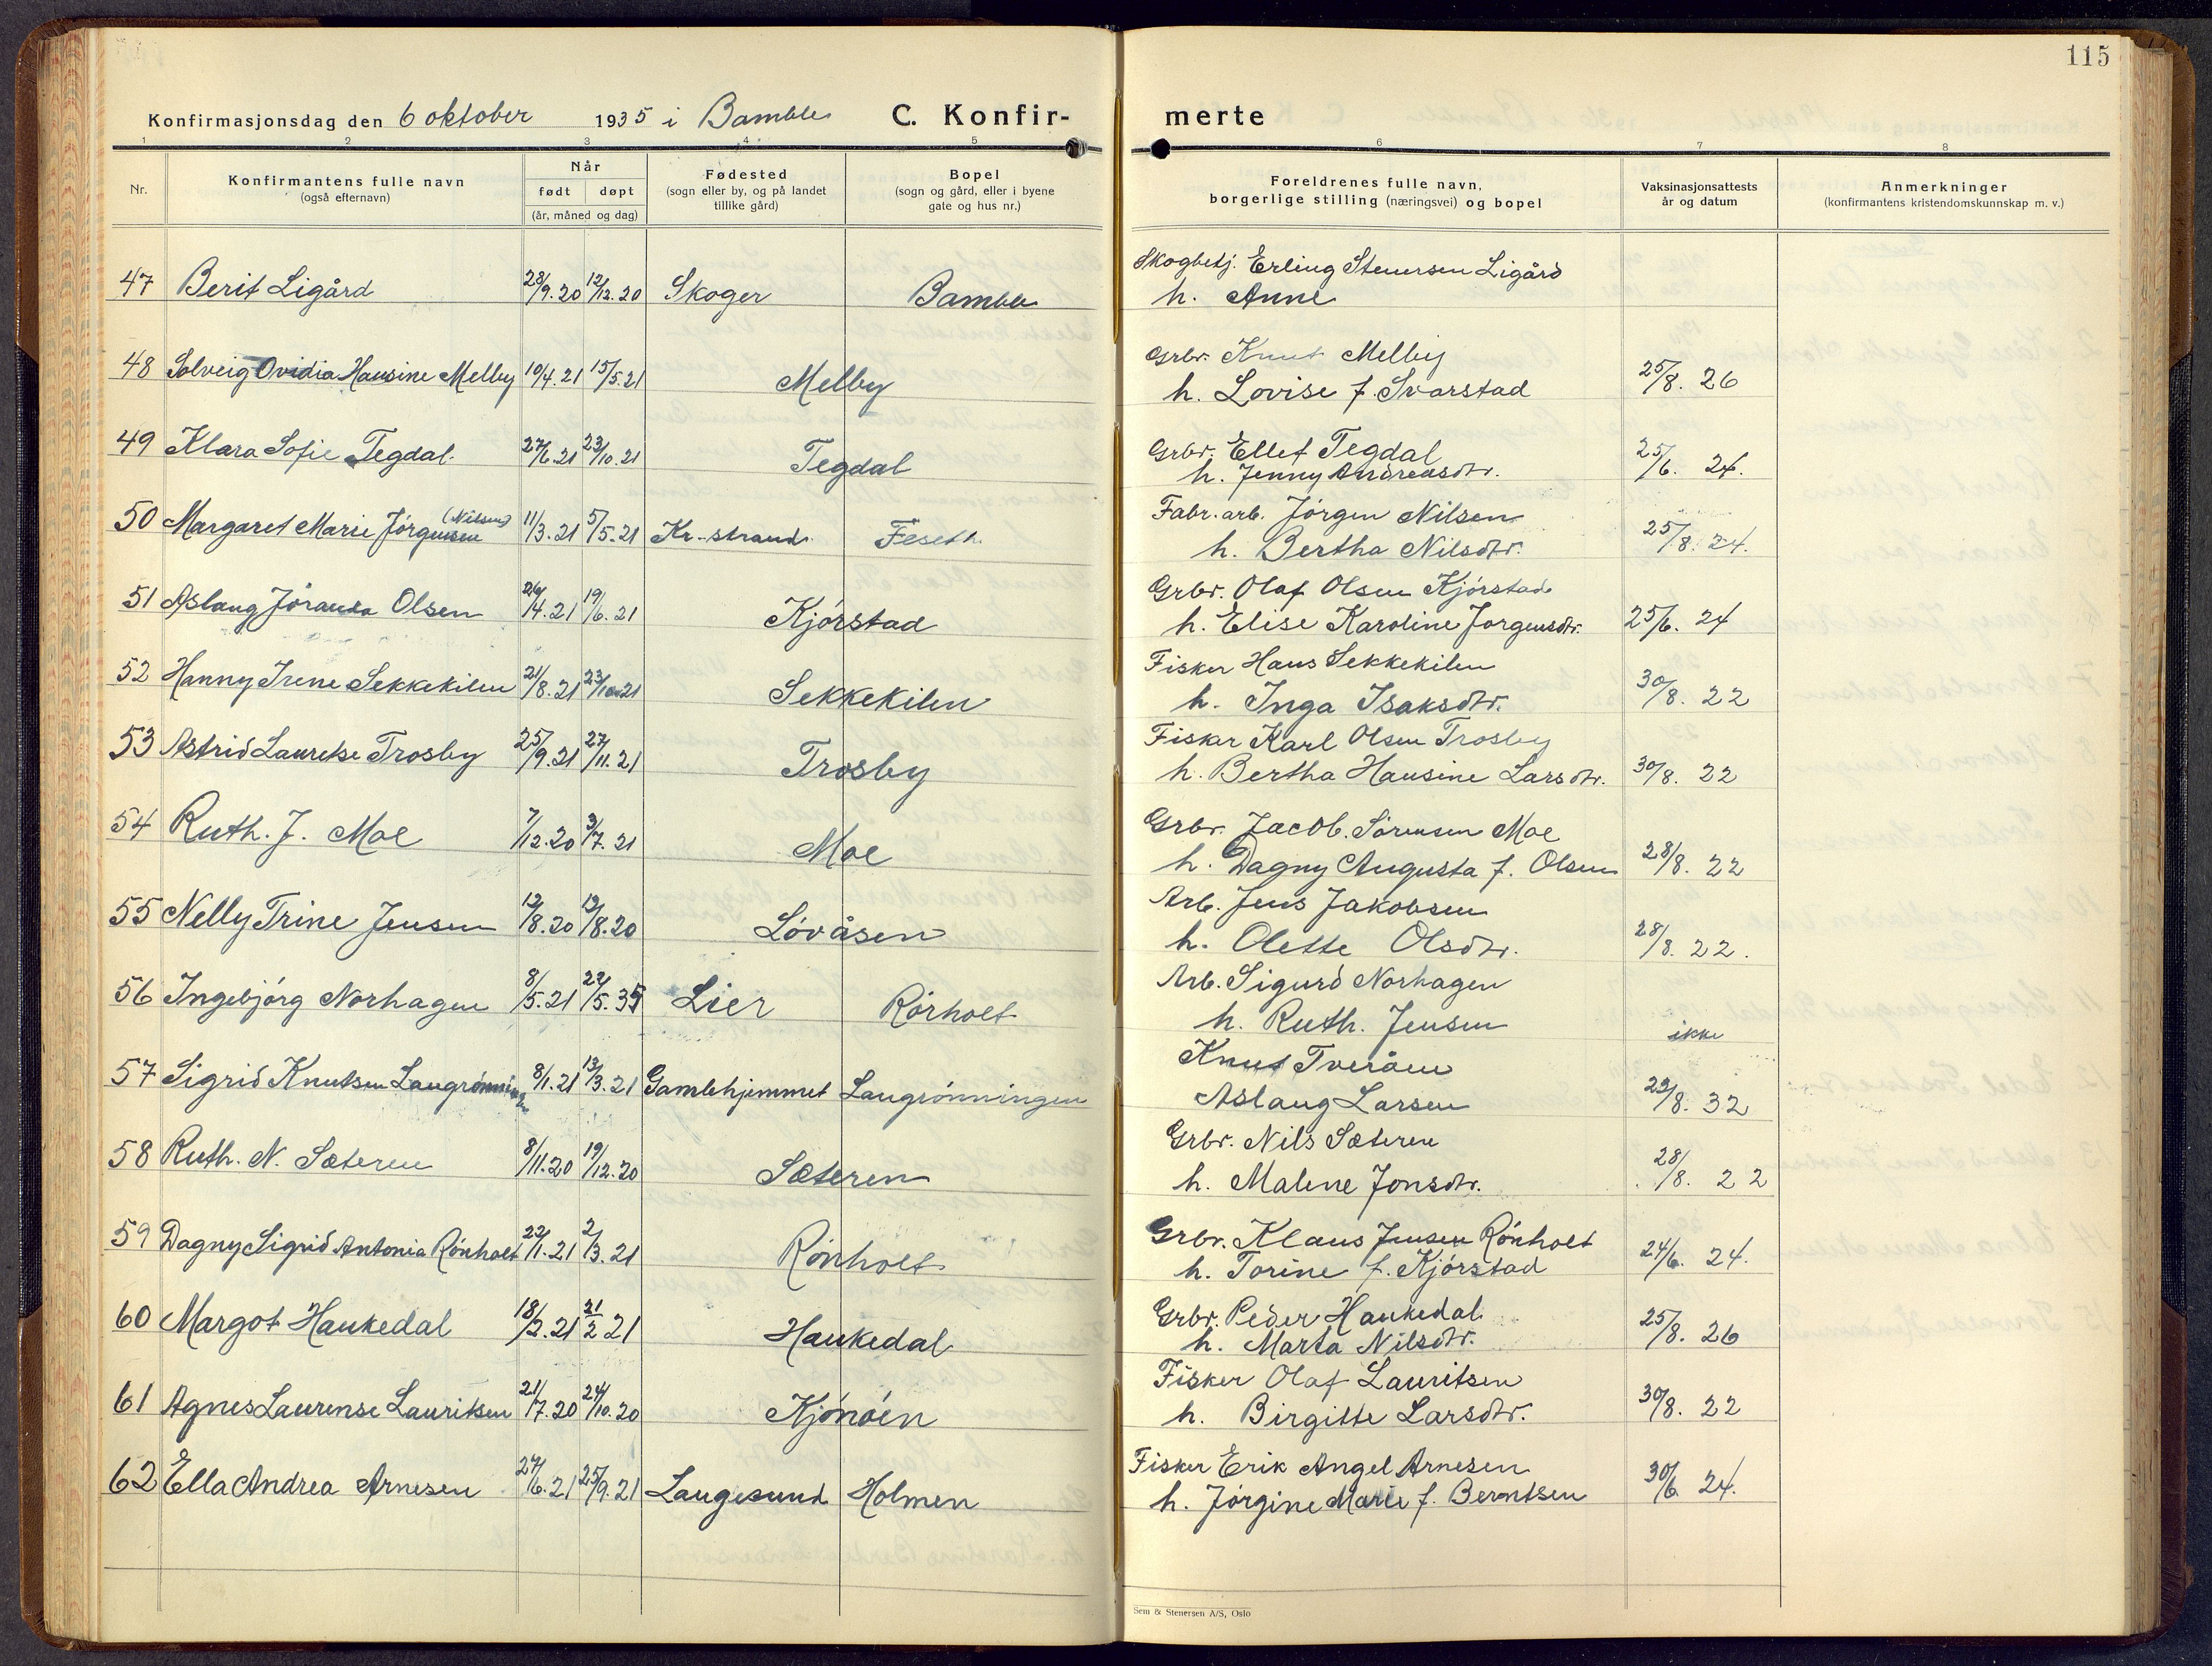 115
Konfirmasjonsdag den 6 oktober 1935 i Bamble C. Konfir-
merte
1 2 3 4 5 6 7 8
Nr.
Konfirmantens fulle navn
(også efternavn)
Når
født døpt
(år, måned og dag)
Fødested
(sogn eller by, og på landet
tillike gård)
Bopel
(sogn og gård, eller i byene
gate og hus nr.)
Foreldrenes fulle navn,
borgerlige stilling (næringsvei) og bopel
Vaksinasjonsattests
år og datum
Anmerkninger
(konfirmantens kristendomskunnskap m. v.)
47 Berit Ligård 28/9.20 12/12.20 Skoger Bamble
Skogbetj. Erling Stenersen Ligård
h. Anne
48 Solveig Ovidia Hansine Melby 10/4.21 15/5.21 Melby
Grbr. Knut Melby
h. Lovise f. Svarstad 25/8. 26
49 Klara Sofie Tegdal. 27/6.21 23/10.21 Tegdal
Grbr. Ellef Tegdal
h. Jenny Andreasdtr. 25/6. 24.
50 Margaret Marie Jørgensen (Nilsen) 11/3.21 5/5.21 Kr.-strand. Feseth.
Fabr.arb. Jørgen Nilsen
h. Bertha Nilsdtr. 25/8. 24.
51 Aslaug Jøranda Olsen 26/4.21 19/6.21 Kjørstad
Grbr. Olaf Olsen Kjørstad
h. Elise Karoline Jørgensdtr. 25/6. 24
52 Hanny Irene Sekkekilen 21/8.21 23/10.21 Sekkekilen
Fisker Hans Sekkekilen
h. Inga Isaksdtr. 30/8. 22
53 Astrid Lauretse Trosby 25/9.21 27/11.21 Trosby
Fisker Karl Olsen Trosby
h. Bertha Hansine Larsdtr. 30/8. 22
54 Ruth. J. Moe 7/12.20 3/7.21 Moe
Grbr. Jacob. Sørensen Moe
h. Dagny Augusta f. Olsen 28/8. 22
55 Nelly Trine Jensen 12/8.20 Løvåsen
Arb. Jens Jakobsen
h. Olette Olsdtr. 28/8. 22.
56 Ingebjørg Norhagen 8/5.21 22/5.35 Lier Rørholt
Arb. Sigurd Norhagen
h. Ruth. Jensen ikke
57 Sigrid Knutsen Laugrønningen 8/1.21 13/3.21 Gamlehjemmet Laugrønningen
Knut Tveråen
Aslaug Larsen 29/8. 32
58 Ruth. N. Sæteren 8/11.20 19/12.20 Sæteren
Grbr. Nils Sæteren
h. Malene Jonsdtr. 28/8. 22
59 Dagny Sigrid Antonia Rønholt 22/1.21 2/3.21 Rønholt
Grbr. Klaus Jensen Rønholt
h. Torine f. Kjørstad 24/6. 24.
60 Margot Haukedal 18/2.21 21 Haukedal
Grbr. Peder Haukedal
h. Marta Nilsdtr. 25/8. 26
61 Agnes Laurense Lauritsen 21/7.20 24/10.20 Kjønøen
Fisker Olaf Lauritsen
h. Birgitte Larsdtr. 30/8. 22
62 Ella Andrea Arnesen 24/6.21 25/9.21 Langesund Holmen
Fisker Erik Angel Arnesen
h. Jørgine Marie f. Berntsen 30/6 24.
Sem & Stenersen A/S, Oslo